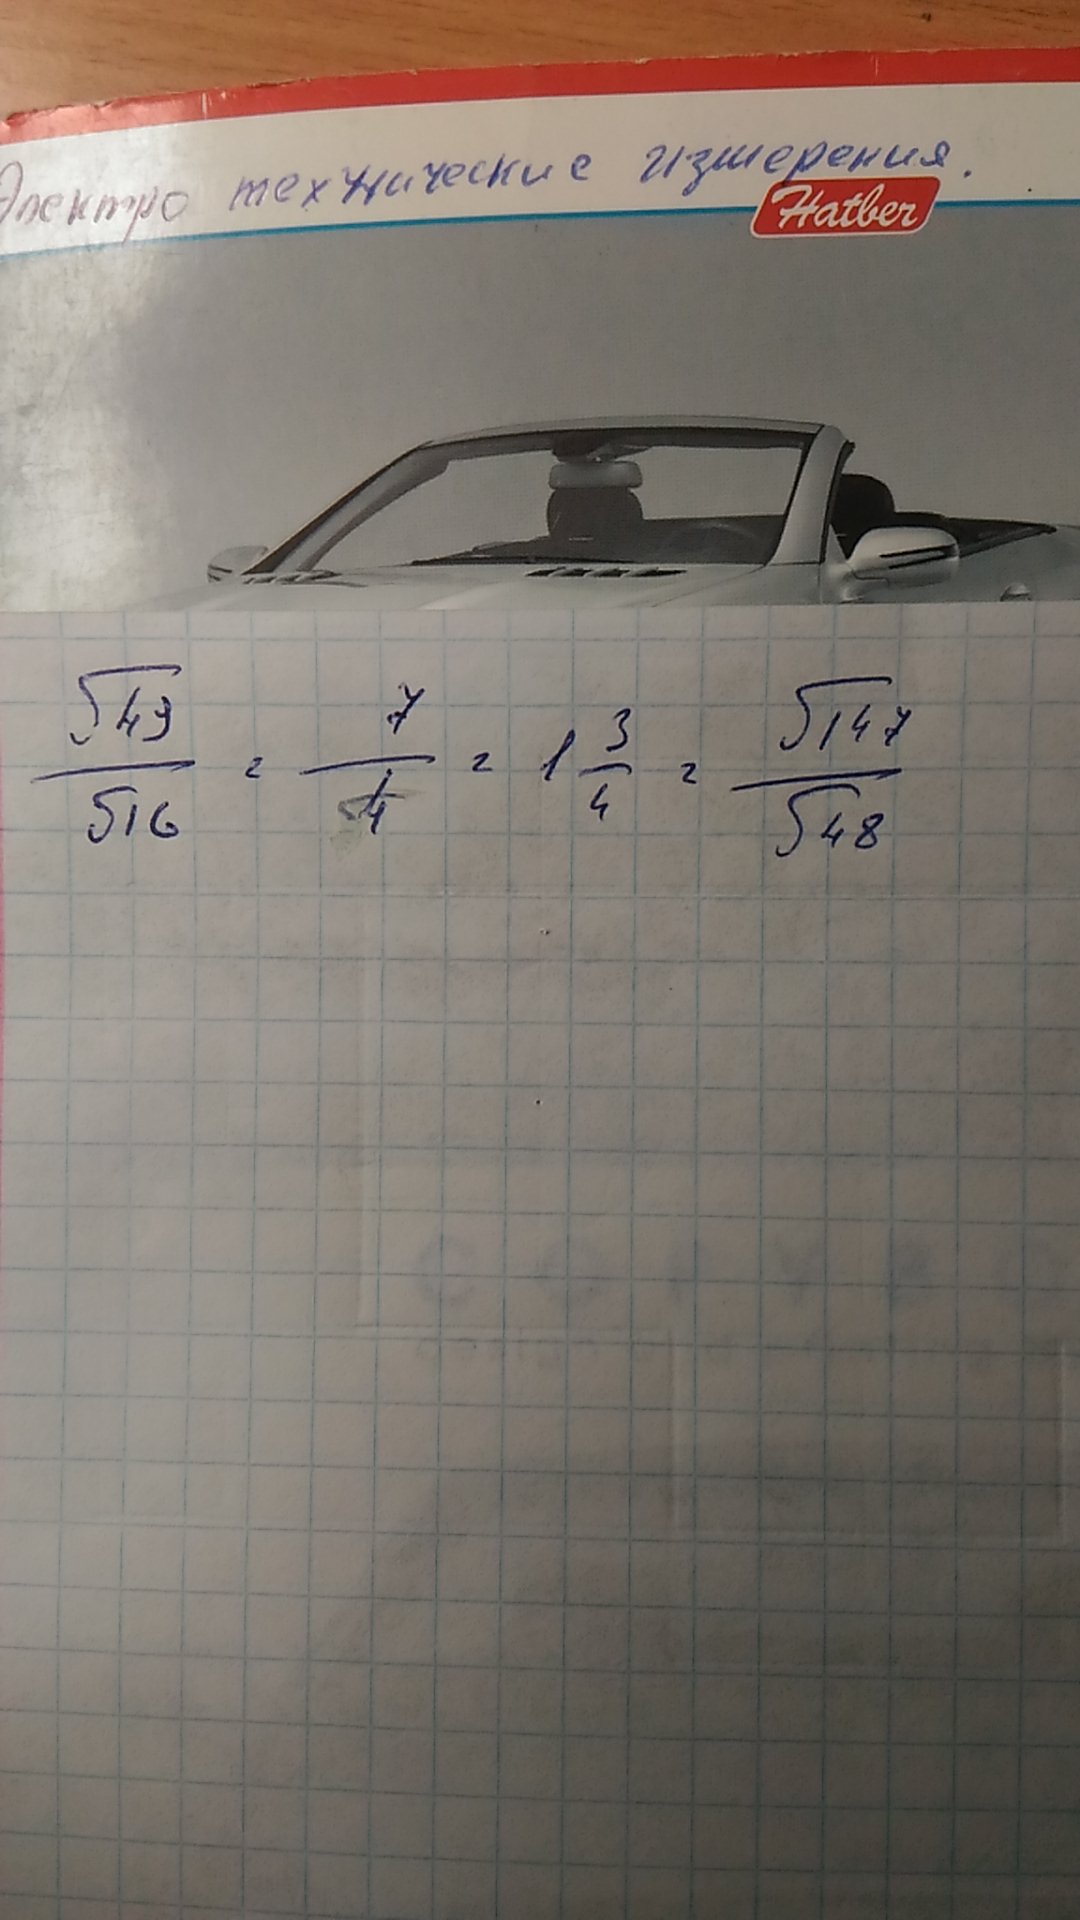 Электро технические измерения.
Hatber
√49/√16 = 7/4 = 1 3/4 = √147/√48